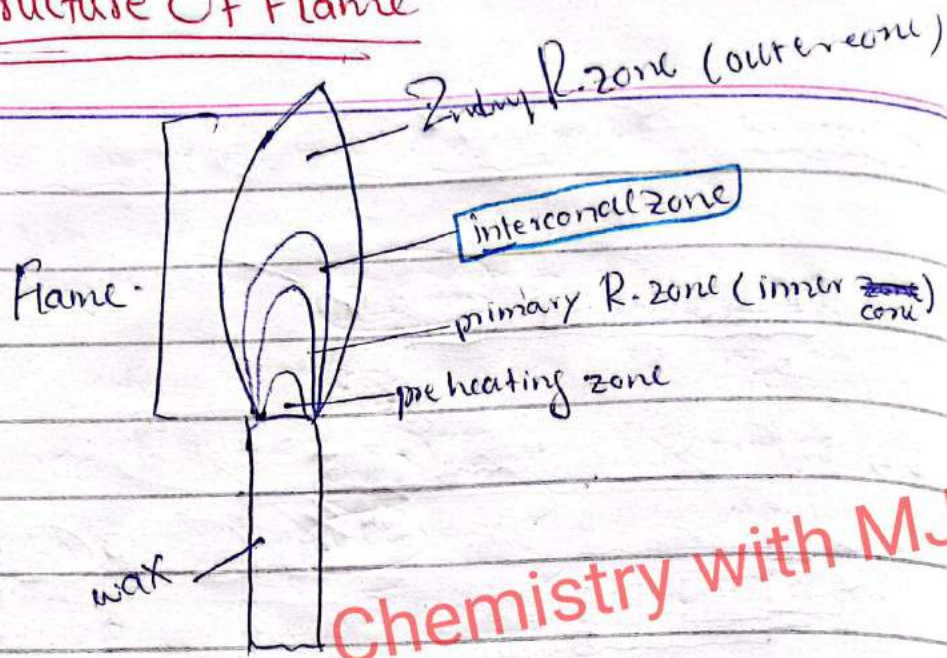 ructure Of Flame
2ndry R.zone (outercone)
interconalzone
Flame.
primary R.zone (inner zone cone)
preheating zone
wax
Chemistry with MJ